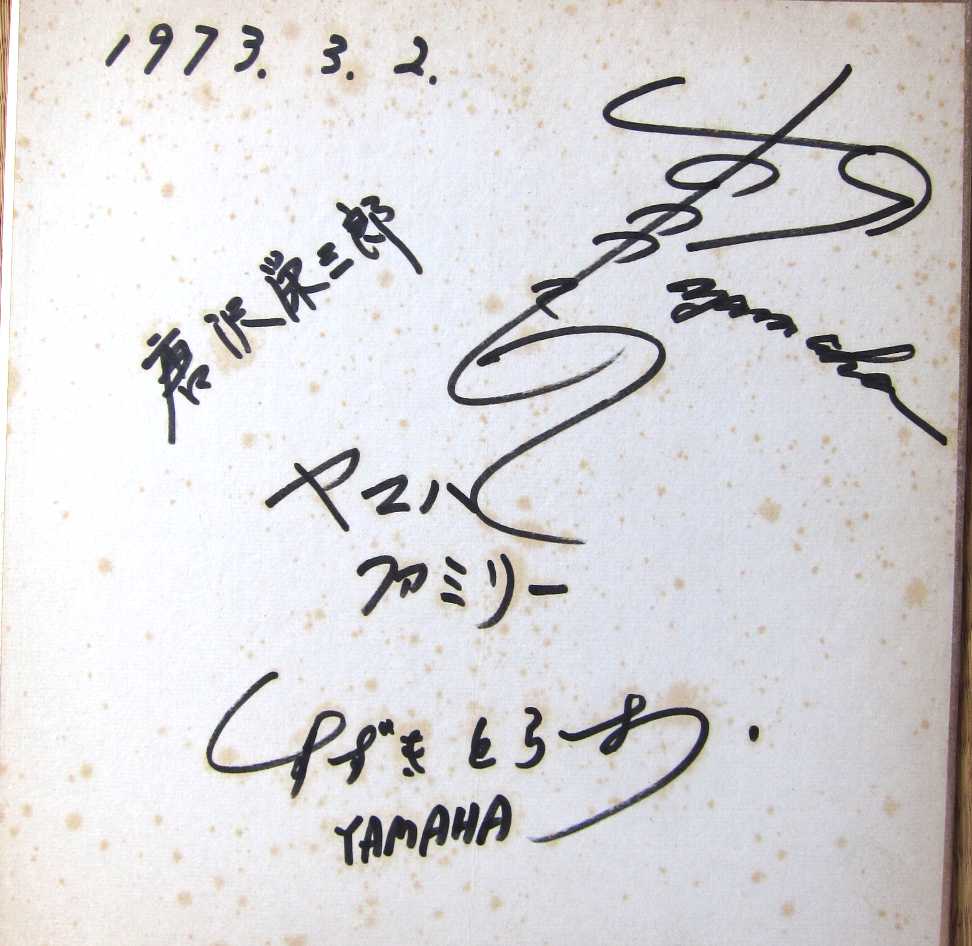 1973. 3. 2.
yamaha
唐沢栄三郎
ヤマハ
ファミリー
すずき とろお
YAMAHA